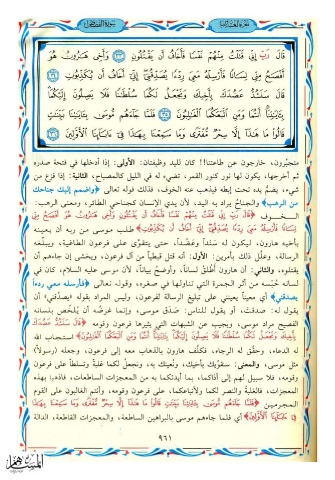 الجزء العشرون
سورة القصص
قَالَ رَبِّ إِنِّي قَتَلْتُ مِنْهُمْ نَفْسًا فَأَخَافُ أَن يَقْتُلُونِ ﴿٣٣﴾ وَأَخِي هَارُونُ هُوَ
أَفْصَحُ مِنِّي لِسَانًا فَأَرْسِلْهُ مَعِيَ رِدْءًا يُصَدِّقُنِي إِنِّي أَخَافُ أَن يُكَذِّبُونِ ﴿٣٤﴾
قَالَ سَنَشُدُّ عَضُدَكَ بِأَخِيكَ وَنَجْعَلُ لَكُمَا سُلْطَانًا فَلَا يَصِلُونَ إِلَيْكُمَا
بِآيَاتِنَا أَنتُمَا وَمَنِ اتَّبَعَكُمَا الْغَالِبُونَ ﴿٣٥﴾ فَلَمَّا جَاءَهُم مُّوسَى بِآيَاتِنَا بَيِّنَاتٍ
قَالُوا مَا هَذَا إِلَّا سِحْرٌ مُّفْتَرًى وَمَا سَمِعْنَا بِهَذَا فِي آبَائِنَا الْأَوَّلِينَ ﴿٣٦﴾
متجبّرون، خارجون عن طاعتنا!! كان لليد وظيفتان: الأولى: إذا أدخلها في فتحة صدره
ثم أخرجها، يكون لها نور كنور القمر، تضيء له في الليل كالمصباح، الثانية: إذا فزع من
شيء، يضمّ يده تحت إبطه فيذهب عنه الخوف، فذلك قوله تعالى ﴿واضمم إليك جناحك
من الرهب﴾ والجناح يراد به اليد، لأن يدي الإنسان كجناحي الطائر، ومعنى الرهب:
الخوف ﴿قَالَ رَبِّ إِنِّي قَتَلْتُ مِنْهُمْ نَفْسًا فَأَخَافُ أَن يَقْتُلُونِ وَأَخِي هَارُونُ هُوَ أَفْصَحُ مِنِّي
لِسَانًا فَأَرْسِلْهُ مَعِيَ رِدْءًا يُصَدِّقُنِي إِنِّي أَخَافُ أَن يُكَذِّبُونِ﴾ طلب موسى من ربه أن يعينه
بأخيه هارون، ليكون له سَنَداً وعضُداً، حتى يتقوّى على فرعون الطاغية، ويبلّغه
الرسالة، وعلّل ذلك بأمرين: الأول: أنه قتل قبطياً من آل فرعون، ويخشى إن جاءهم أن
يقتلوه، والثاني: أن هارون أطْلقُ لساناً، وأوضحُ بياناً، لأن موسى عليه السلام، كان في
لسانه حُبْسة من أثر الجمرة التي تناولها في صغره، وقوله تعالى ﴿فأرسله معي ردءاً
يصدقني﴾ أي معيناً يعينني على تبليغ الرسالة لفرعون، وليس المراد بقوله «يصدقني» أن
يقول له: صدقتَ، أو يقول للناس: صَدَق موسى، وإنما غرضُه أن يُلخّص بلسانه
الفصيح مراد موسى، ويجيب عن الشبهات التي يثيرها فرعون وقومه ﴿قَالَ سَنَشُدُّ عَضُدَكَ
بِأَخِيكَ وَنَجْعَلُ لَكُمَا سُلْطَانًا فَلَا يَصِلُونَ إِلَيْكُمَا بِآيَاتِنَا أَنتُمَا وَمَنِ اتَّبَعَكُمَا الْغَالِبُونَ﴾ استجاب الله
له الدعاء، وحقّق له الرجاء، فكلّف هارون بالذهاب معه إلى فرعون، وجعله (رسولاً)
مثل موسى، والمعنى: سنقوّيك بأخيك، ونُعينك به، ونجعل لكما غَلَبة وتسلطاً على فرعون
وقومه، فلا سبيل لهم إلى أذاكما، بما أيدتكما به من المعجزات الساطعات، فاذهبا بهذه
المعجزات، فالغلبة والنصر لكما ولأتباعكما، على فرعون وقومه، وأنتم الغالبون على القوم
المجرمين ﴿فَلَمَّا جَاءَهُم مُّوسَى بِآيَاتِنَا بَيِّنَاتٍ قَالُوا مَا هَذَا إِلَّا سِحْرٌ مُّفْتَرًى وَمَا سَمِعْنَا بِهَذَا
فِي آبَائِنَا الْأَوَّلِينَ﴾ أي فلما جاءهم موسى بالبراهين الساطعة، والمعجزات القاطعة، الدالة
٩٦١